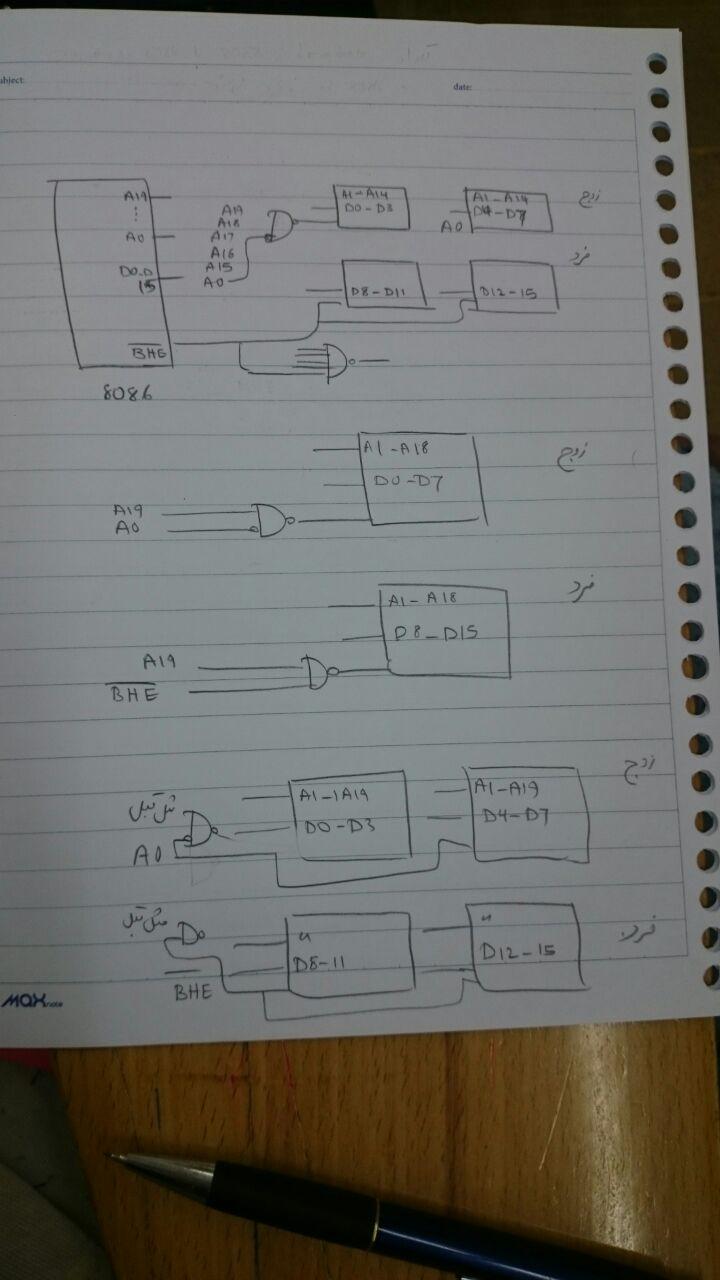 ubject:
date:
A19
A0
D0-D
15
BHE
8086
A19
A18
A17
A16
A15
A0
A1-A14
D0-D3
A1-A14
D4-D7
A0
زوج
D8-D11
D12-15
فرد
A1-A18
D0-D7
زوج
A19
A0
A1-A18
D8-D15
فرد
A19
BHE
مثل قبل
A0
A1-1A19
D0-D3
A1-A19
D4-D7
زوج
مثل قبل
BHE
"
D8-11
"
D12-15
فرد
MAX note